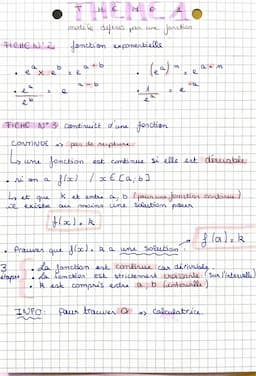 THEME 1
modèle définis par une fonction
FICHE N°2 fonction exponentielle
• e^a × e^b = e^a+b • (e^a)^n = e^a×n
• e^a / e^b = e^a-b • 1 / e^a = e^-a
FICHE N°3 continuité d'une fonction
CONTINUE => pas de rupture
↳ une fonction est continue si elle est dérivable
• si on a f(x) / x ∈ [a,b]
↳ et que K et entre a, b (pour une fonction continue)
il existe au moins une solution pour
f(x) = k
• Prouver que f(x) = k a une solution → f(a) = k
3 étapes
• La fonction est continue car dérivable
• La fonction est strictement croissante (sur l'intervalle)
• K est compris entre a, b (intervalle)
INFO: Pour trouver => calculatrice